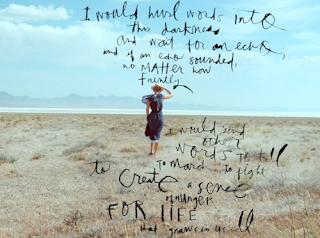 I would hurl words into
this darkness
and wait for an echo,
and if an echo sounded,
no matter how
faintly,
I would send
other
words to tell
to march, to fight
to create a sense
of hunger
FOR LIFE
that gnaws in us all